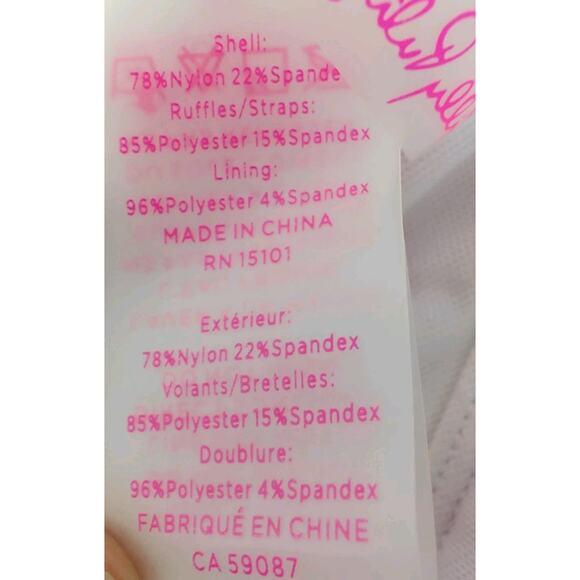 Shell:
78%Nylon 22%Spande
Ruffles/Straps:
85%Polyester 15%Spandex
Lining:
96%Polyester 4%Spandex
MADE IN CHINA
RN 15101
Extérieur:
78%Nylon 22%Spandex
Volants/Bretelles:
85%Polyester 15%Spandex
Doublure:
96%Polyester 4%Spandex
FABRIQUÉ EN CHINE
CA 59087